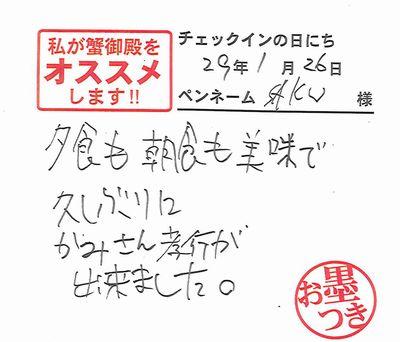 私が蟹御殿を
オススメ
します!!
チェックインの日にち
29年1月26日
ペンネーム AKU 様
夕食も朝食も美味で
久しぶりに
かみさん孝行が
出来ました。
お墨つき